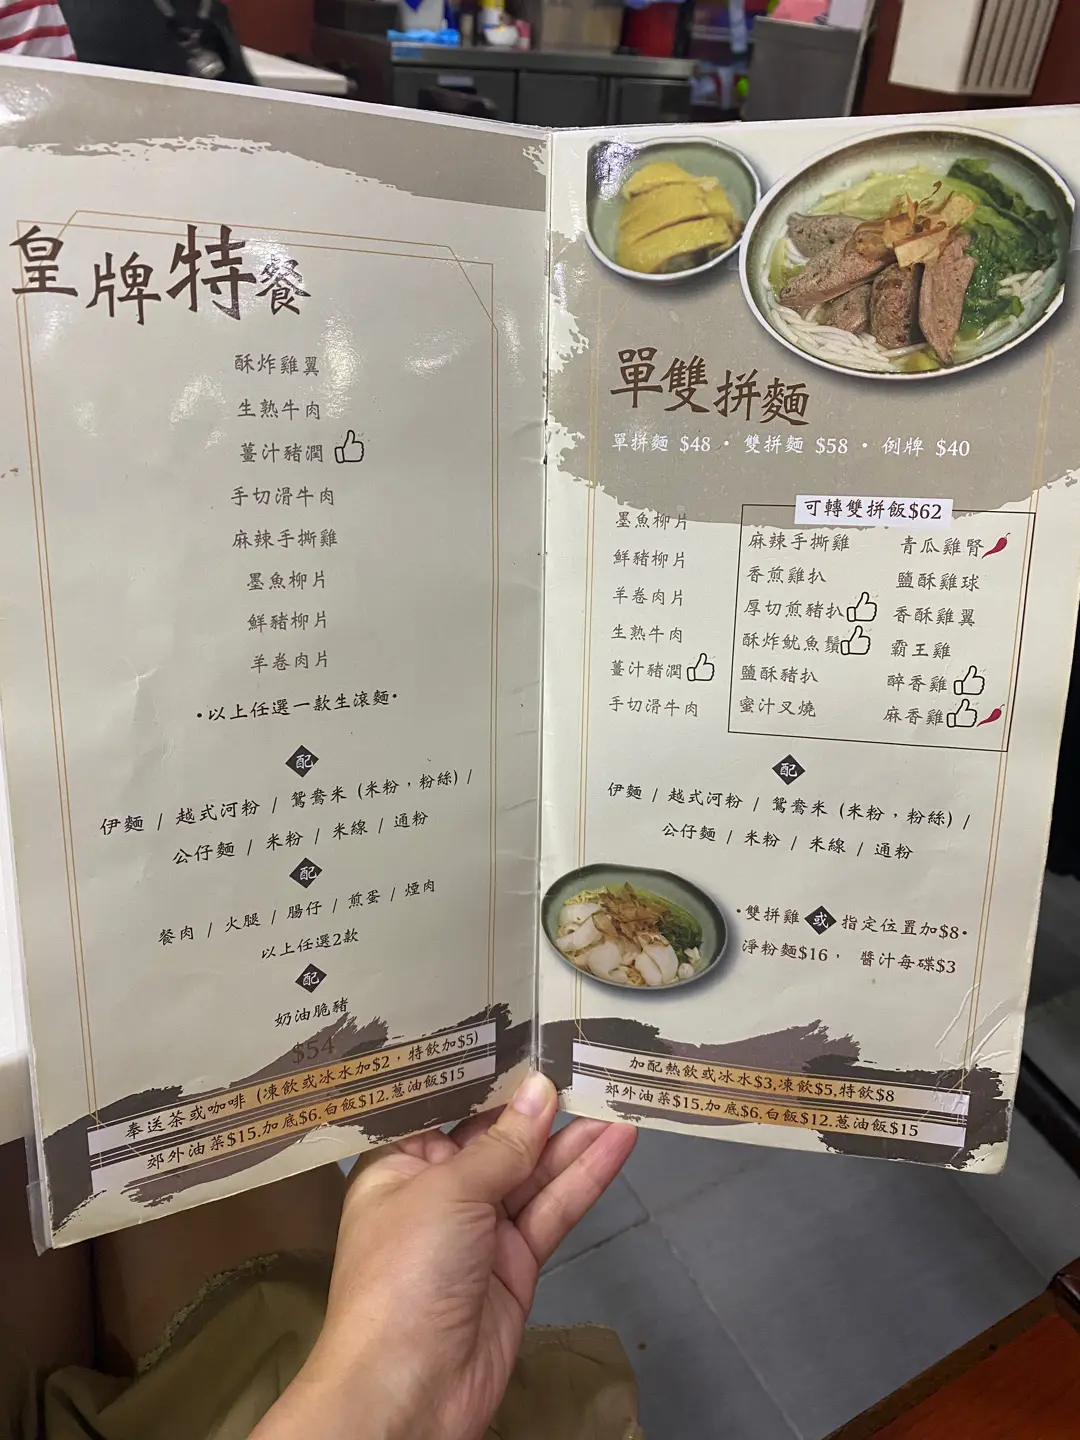 皇牌特餐
酥炸雞翼
生熟牛肉
薑汁豬潤
手切滑牛肉
麻辣手撕雞
墨魚柳片
鮮豬柳片
羊卷肉片
•以上任選一款生滾麵•
配
伊麵 / 越式河粉 / 鴛鴦米 (米粉，粉絲) /
公仔麵 / 米粉 / 米線 / 通粉
配
餐肉 / 火腿 / 腸仔 / 煎蛋 / 煙肉
以上任選2款
配
奶油脆豬
$54
奉送茶或咖啡 (凍飲或冰水加$2，特飲加$5)
郊外油菜$15.加底$6.白飯$12.蔥油飯$15
單雙拼麵
單拼麵 $48 • 雙拼麵 $58 • 例牌 $40
墨魚柳片
鮮豬柳片
羊卷肉片
生熟牛肉
薑汁豬潤
手切滑牛肉
可轉雙拼飯$62
麻辣手撕雞
香煎雞扒
厚切煎豬扒
酥炸魷魚鬚
鹽酥豬扒
蜜汁叉燒
青瓜雞腎
鹽酥雞球
香酥雞翼
霸王雞
醉香雞
麻香雞
配
伊麵 / 越式河粉 / 鴛鴦米 (米粉，粉絲) /
公仔麵 / 米粉 / 米線 / 通粉
•雙拼雞 或 指定位置加$8•
淨粉麵$16， 醬汁每碟$3
加配熱飲或冰水$3,凍飲$5,特飲$8
郊外油菜$15.加底$6.白飯$12.蔥油飯$15